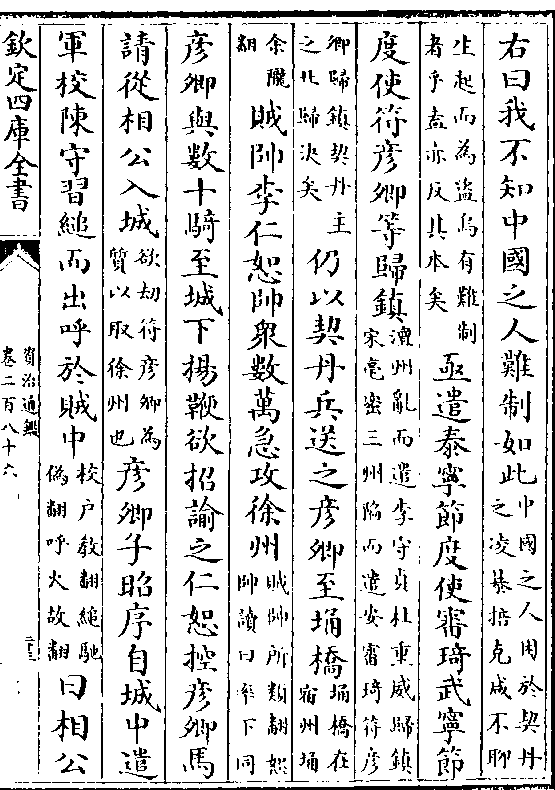 右曰我不知中國之人難制如此
中國之人困於契丹
之凌暴掊克咸不聊
生起而為盜烏有難制
者乎盍亦反其本矣
亟遣泰寧節度使審琦武寧節
度使符彥卿等歸鎮
澶州亂而遣李守貞杜重威歸鎮
宋亳密三州陷而遣安審琦符彥
卿歸鎮契丹主
之北歸決矣
仍以契丹兵送之彥卿至埇橋
埇橋在
宿州埇
余隴
翻
賊帥李仁恕帥衆數萬急攻徐州
賊帥所類翻恕
帥讀曰率下同
彥卿與數十騎至城下揚鞭欲招諭之仁恕控彥卿馬
請從相公入城
欲劫符彥卿為
質以取徐州也
彥卿子昭序自城中遣
軍校陳守習縋而出呼於賊中
校户教翻縋馳
偽翻呼火故翻
曰相公
欽定四庫全書
資治通鑑
卷二百八十六